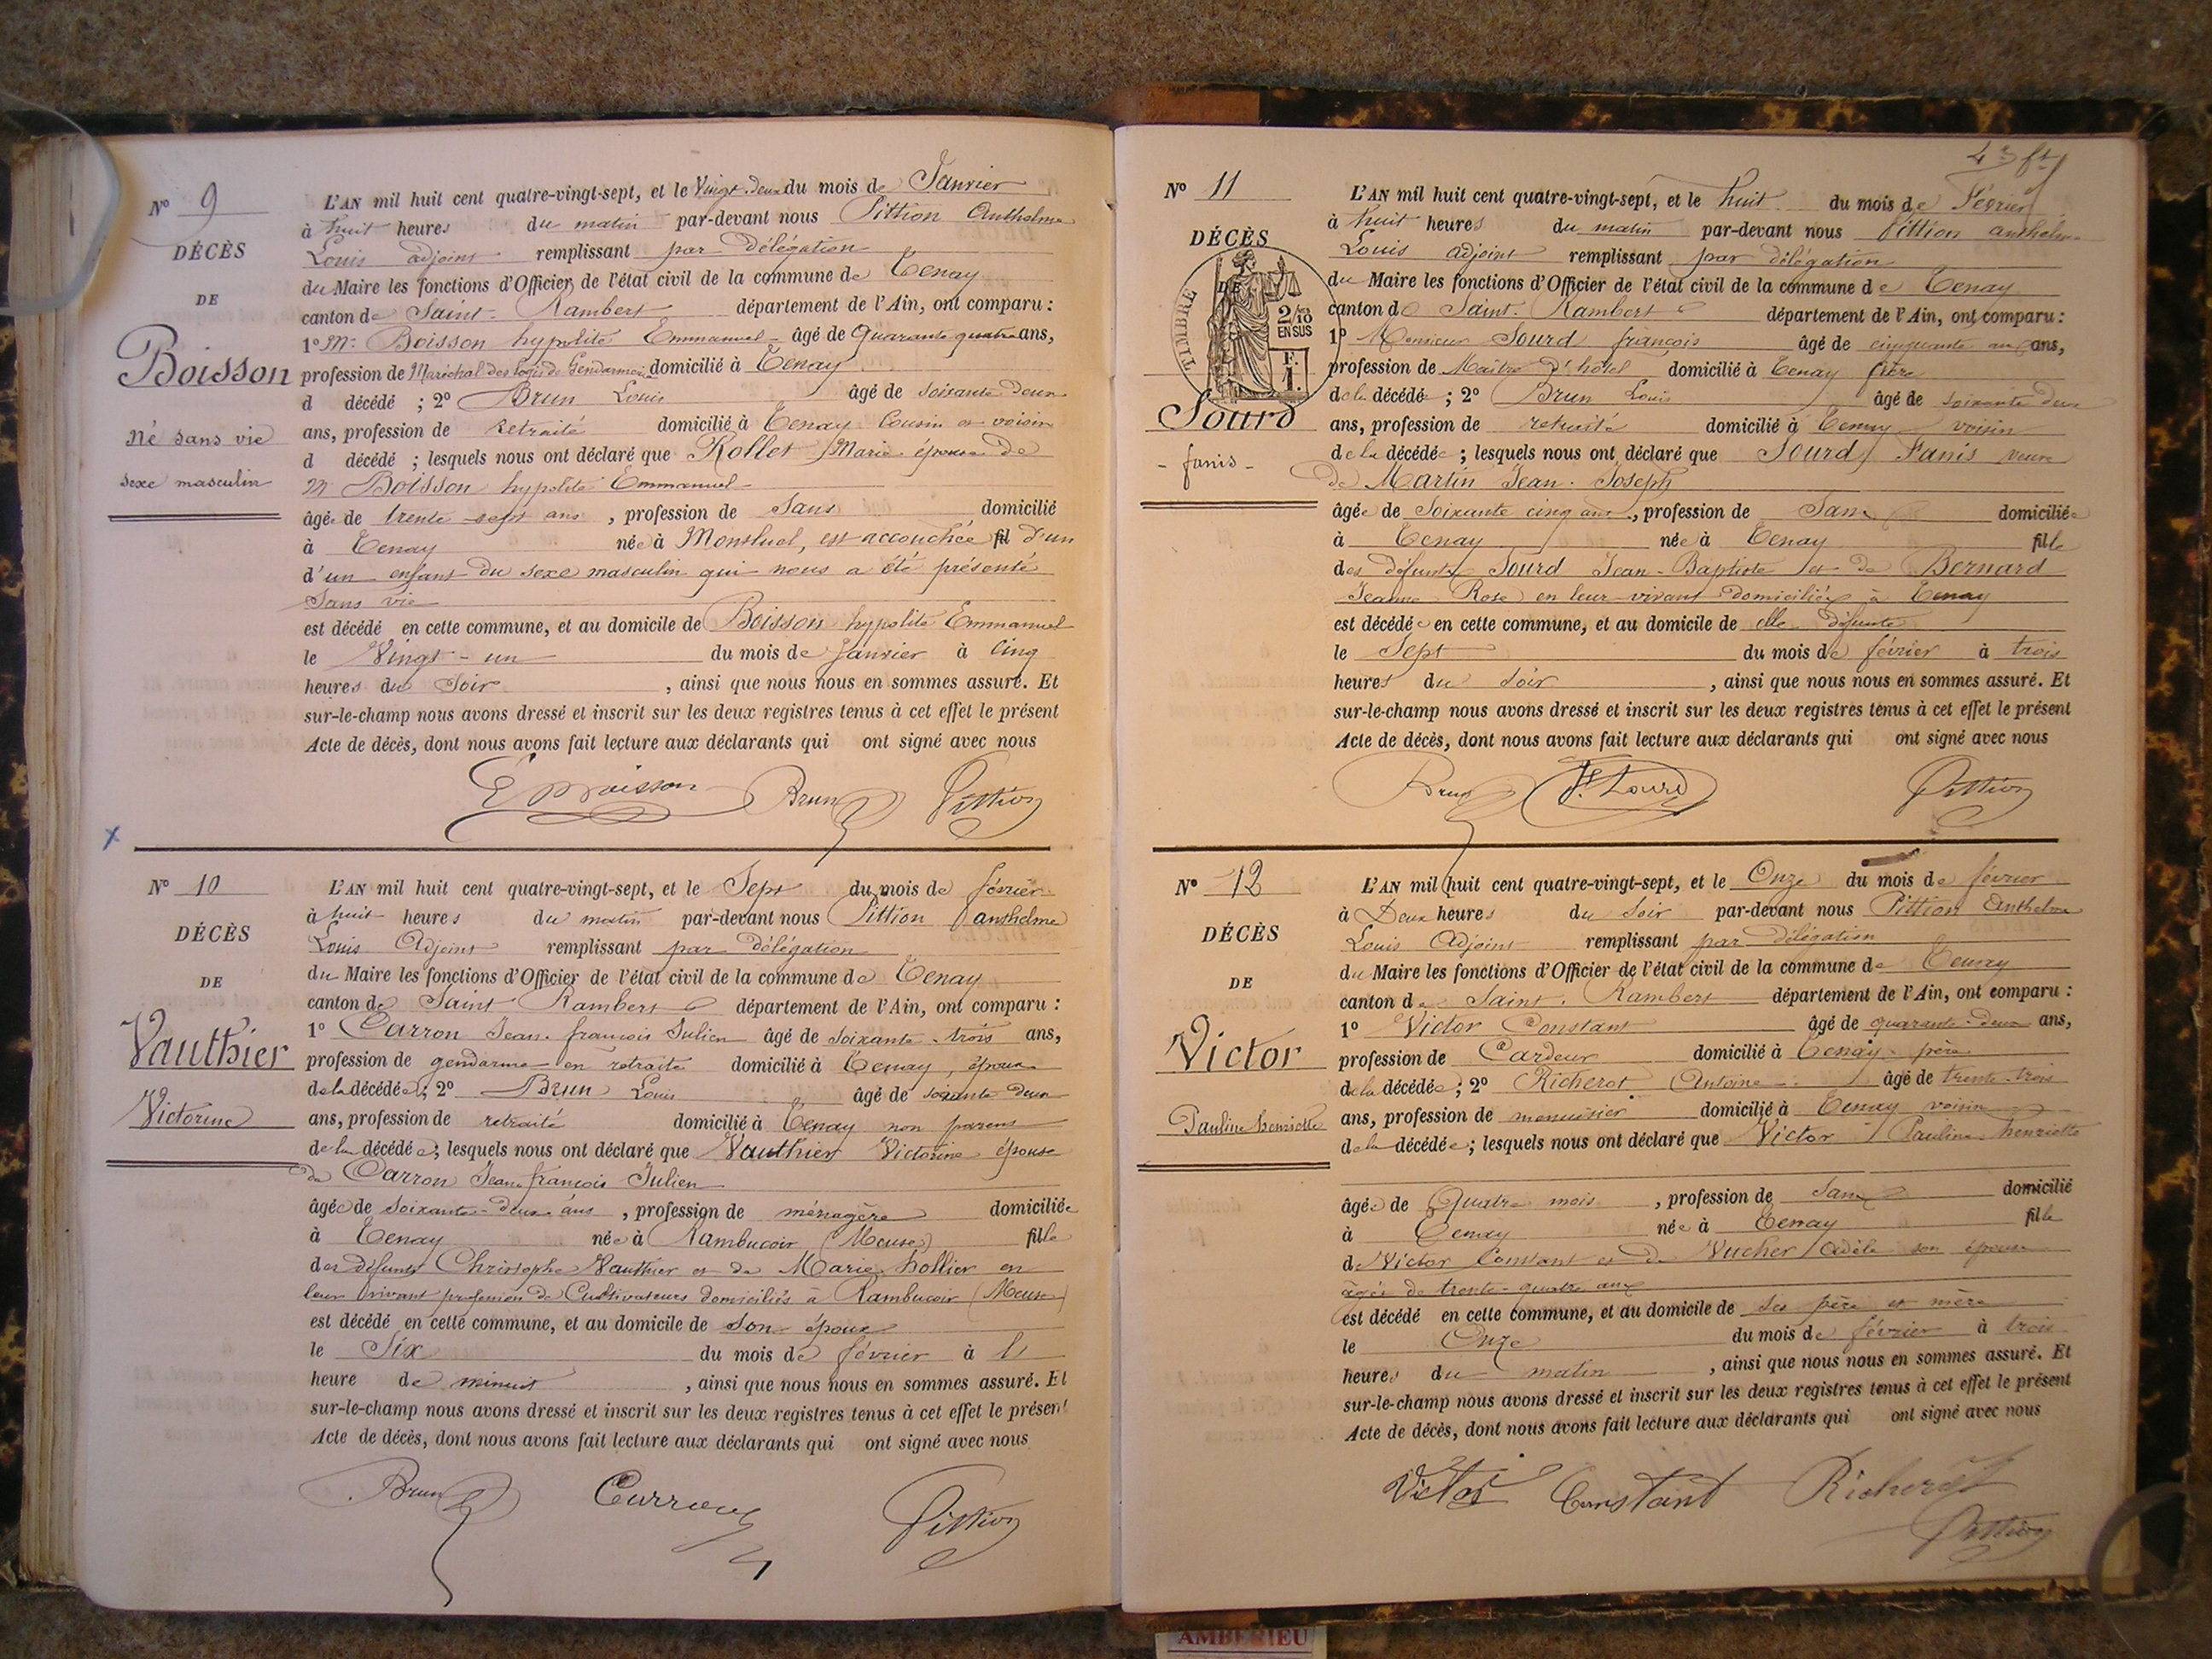 N° 9
DÉCÈS
DE
Boisson
Né sans vie
sexe masculin
L'AN mil huit cent quatre-vingt-sept, et le Vingt-Deux du mois de Janvier
à huit heures du matin par-devant nous Pittion Anthelme
Louis adjoint remplissant par Délégation
du Maire les fonctions d'Officier de l'état civil de la commune de Tenay
canton de Saint-Rambert département de l'Ain, ont comparu :
1° Mr Boisson hypolite Emmanuel âgé de Quarante quatre ans,
profession de Maréchal des logis de Gendarmerie domicilié à Tenay
d décédé ; 2° Brun Louis âgé de soixante deux
ans, profession de Retraité domicilié à Tenay Cousin et voisin
d décédé ; lesquels nous ont déclaré que Rollet Marie épouse de
M Boisson hypolite Emmanuel
âgée de trente sept ans, profession de Sans domicilié
à Tenay née à Montluel, est accouchée fil d'un
d'un enfant du sexe masculin qui nous a été présenté
Sans vie
est décédé en cette commune, et au domicile de Boisson hypolite Emmanuel
le Vingt-un du mois de Janvier à Cinq
heures du Soir, ainsi que nous nous en sommes assuré. Et
sur-le-champ nous avons dressé et inscrit sur les deux registres tenus à cet effet le présent
Acte de décès, dont nous avons fait lecture aux déclarants qui ont signé avec nous
E Boisson Brun Pittion
x
N° 10
DÉCÈS
DE
Vauthier
Victorine
L'AN mil huit cent quatre-vingt-sept, et le Sept du mois de février
à huit heures du matin par-devant nous Pittion anthelme
Louis Adjoint remplissant par Délégation
du Maire les fonctions d'Officier de l'état civil de la commune de Tenay
canton de Saint Rambert département de l'Ain, ont comparu :
1° Carron Jean françois Julien âgé de soixante-trois ans,
profession de gendarme en retraite domicilié à Tenay, époux
de la décédée; 2° Brun Louis âgé de soixante deux
ans, profession de retraité domicilié à Tenay non parent
de la décédée; lesquels nous ont déclaré que Vauthier Victorine épouse
de Carron Jean françois Julien
âgée de soixante-deux ans, profession de ménagère domiciliée
à Tenay née à Rambucoir (Meuse) fille
des défunts Christophe Vauthier et de Marie hollier en
leur vivant profession de Cultivateurs domiciliés à Rambucoir (Meuse)
est décédé en cette commune, et au domicile de son époux
le Six du mois de février à l'
heure de minuit, ainsi que nous nous en sommes assuré. Et
sur-le-champ nous avons dressé et inscrit sur les deux registres tenus à cet effet le présent
Acte de décès, dont nous avons fait lecture aux déclarants qui ont signé avec nous
Brun Carron Pittion
N° 11
DÉCÈS
DE
TIMBRE
2/10
EN SUS
F.
1.
Sourd
- fanis -
L'AN mil huit cent quatre-vingt-sept, et le huit du mois de Février
à huit heures du matin par-devant nous Pittion anthelme
Louis adjoint remplissant par délégation
du Maire les fonctions d'Officier de l'état civil de la commune de Tenay
canton de Saint-Rambert département de l'Ain, ont comparu :
1° Monsieur Sourd françois âgé de cinquante ans,
profession de Maître d'hôtel domicilié à Tenay frère
de la décédée ; 2° Brun Louis âgé de soixante deux
ans, profession de retraité domicilié à Tenay voisin
de la décédée ; lesquels nous ont déclaré que Sourd Fanis veuve
de Martin Jean-Joseph
âgée de Soixante cinq ans, profession de Sans domiciliée
à Tenay née à Tenay fille
des défunts Sourd Jean-Baptiste et de Bernard
Jeanne Rose en leur vivant domiciliés à Tenay
est décédée en cette commune, et au domicile de elle défunte
le Sept du mois de février à trois
heures du soir, ainsi que nous nous en sommes assuré. Et
sur-le-champ nous avons dressé et inscrit sur les deux registres tenus à cet effet le présent
Acte de décès, dont nous avons fait lecture aux déclarants qui ont signé avec nous
Brun F. Sourd Pittion
N° 12
DÉCÈS
DE
Victor
Pauline henriette
L'AN mil huit cent quatre-vingt-sept, et le Onze du mois de février
à Deux heures du Soir par-devant nous Pittion Anthelme
Louis Adjoint remplissant par délégation
du Maire les fonctions d'Officier de l'état civil de la commune de Tenay
canton de Saint-Rambert département de l'Ain, ont comparu :
1° Victor Constant âgé de quarante-deux ans,
profession de Cardeur domicilié à Tenay père
de la décédée ; 2° Richerot Antoine âgé de trente-trois
ans, profession de menuisier domicilié à Tenay voisin
de la décédée ; lesquels nous ont déclaré que Victor Pauline henriette
âgée de Quatre mois, profession de Sans domicilié
à Tenay née à Tenay fille
de Victor Constant et de Vucher Adèle son épouse
âgée de trente-quatre ans
est décédé en cette commune, et au domicile de ses père et mère
le Onze du mois de février à trois
heures du matin, ainsi que nous nous en sommes assuré. Et
sur-le-champ nous avons dressé et inscrit sur les deux registres tenus à cet effet le présent
Acte de décès, dont nous avons fait lecture aux déclarants qui ont signé avec nous
Victor Constant Richerot
Pittion
AMBERIEU